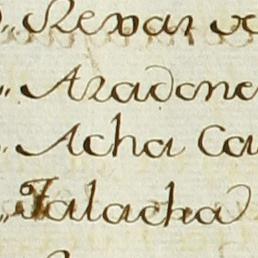 Revar
Aradone
Acha Ca
Jalacha